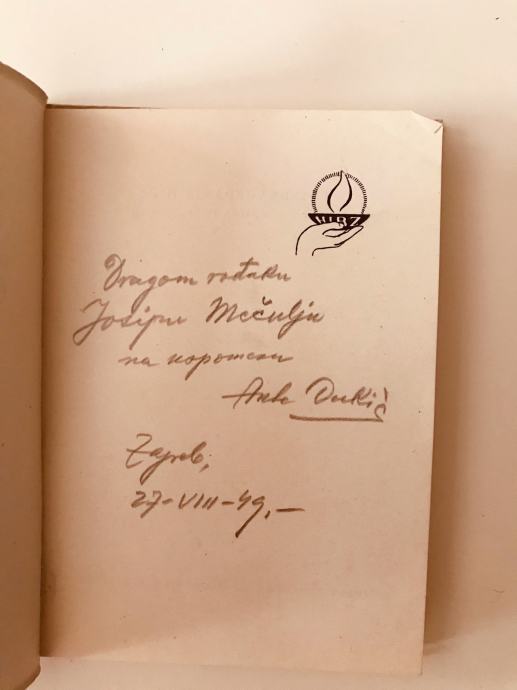 HIBZ
Dragom rođaku
Josipu Mečulju
na uspomenu
Ante Dukić
Zagreb,
27-VIII-49.—